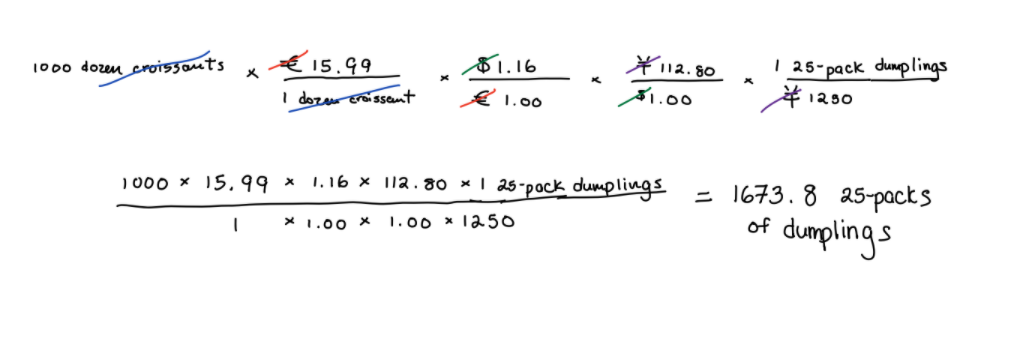 1000 dozen croissants × € 15.99 / 1 dozen croissant × $1.16 / € 1.00 × ¥112.80 / $1.00 × 1 25-pack dumplings / ¥ 1250
1000 × 15.99 × 1.16 × 112.80 × 1 25-pack dumplings / 1 × 1.00 × 1.00 × 1250 = 1673.8 25-packs
of dumplings